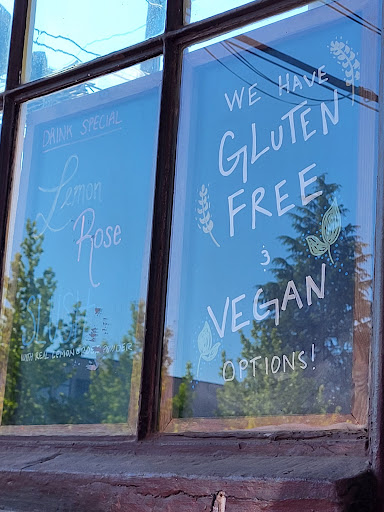 DRINK SPECIAL
Lemon
Rose
SLUSH
WITH REAL LEMON & ROSE POWDER
WE HAVE
GLUTEN
FREE
&
VEGAN
OPTIONS!